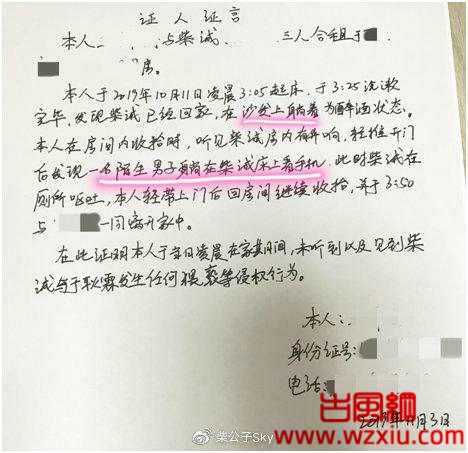 证人证言
本人 与柴诚 三人合租于
房。
本人于2019年10月11日凌晨3:05起床，于3:25洗漱
完毕，发现柴诚已经回家，在沙发上躺着为醉酒状态。
本人在房间内收拾时，听见柴诚房内有异响，轻推开门
后发现一名陌生男子躺在柴诚床上看手机，此时柴诚在
厕所呕吐，本人轻带上门后回房间继续收拾，并于3:50
与 一同离开家中。
在此证明本人于当日凌晨在家其间，未听到以及见到柴
诚与于耿霖发生任何猥亵等侵权行为。
本人:
身份证号:
电话:
2019年11月3日
柴公子Sky
出国網
www.wzxiu.com